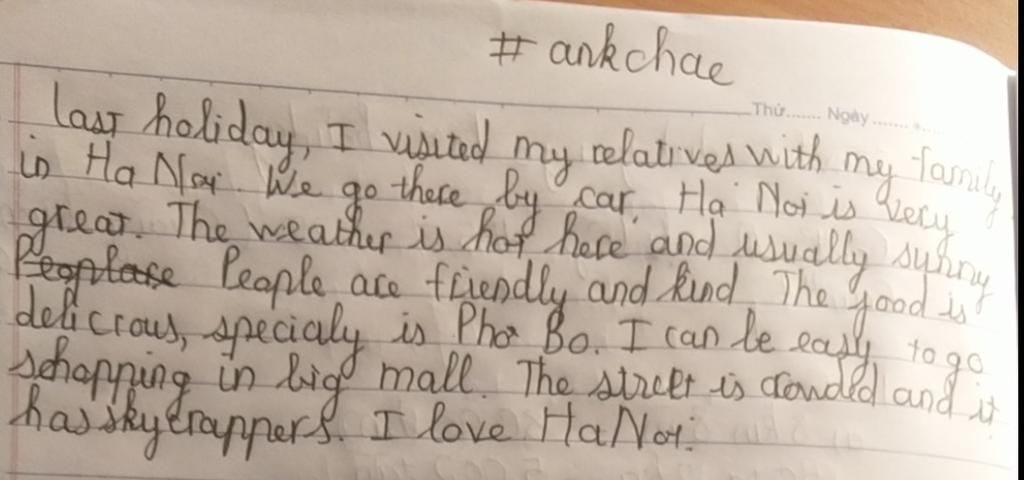 # ankchae
Thứ....... Ngày ..............
last holiday, I visited my relatives with my family
in Ha Noi. We go there by car. Ha Noi is very
great. The weather is hot here and usually synny
Peoplare People are friendly and kind. The food is
delicrous, specialy is Phơ Bo. I can be easy to go
schopping in big mall. The street is crowded and it
has skycrappers. I love Ha Noi.